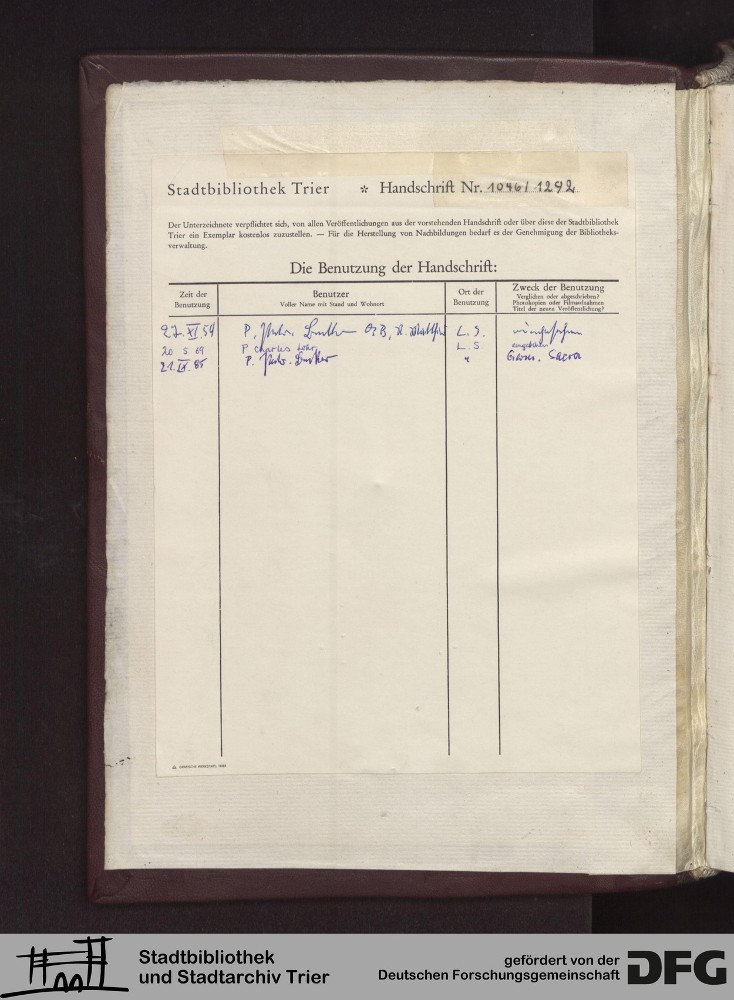 Stadtbibliothek Trier * Handschrift Nr. 1046/1292
Der Unterzeichnete verpflichtet sich, von allen Veröffentlichungen aus der vorstehenden Handschrift oder über diese der Stadtbibliothek
Trier ein Exemplar kostenlos zuzustellen. — Für die Herstellung von Nachbildungen bedarf es der Genehmigung der Bibliotheks-
verwaltung.
Die Benutzung der Handschrift:
Zeit der
Benutzung
Benutzer
Voller Name mit Stand und Wohnort
Ort der
Benutzung
Zweck der Benutzung
Verglichen oder abgeschrieben?
Photokopien oder Filmaufnahmen
Titel der neuen Veröffentlichung?
27. XI. 54 P. L. S.
20 5 69 P. Charles Lohr L. S eingesehen
21. IX. 85 P. " Sacra
Stadtbibliothek
und Stadtarchiv Trier
gefördert von der
Deutschen Forschungsgemeinschaft DFG